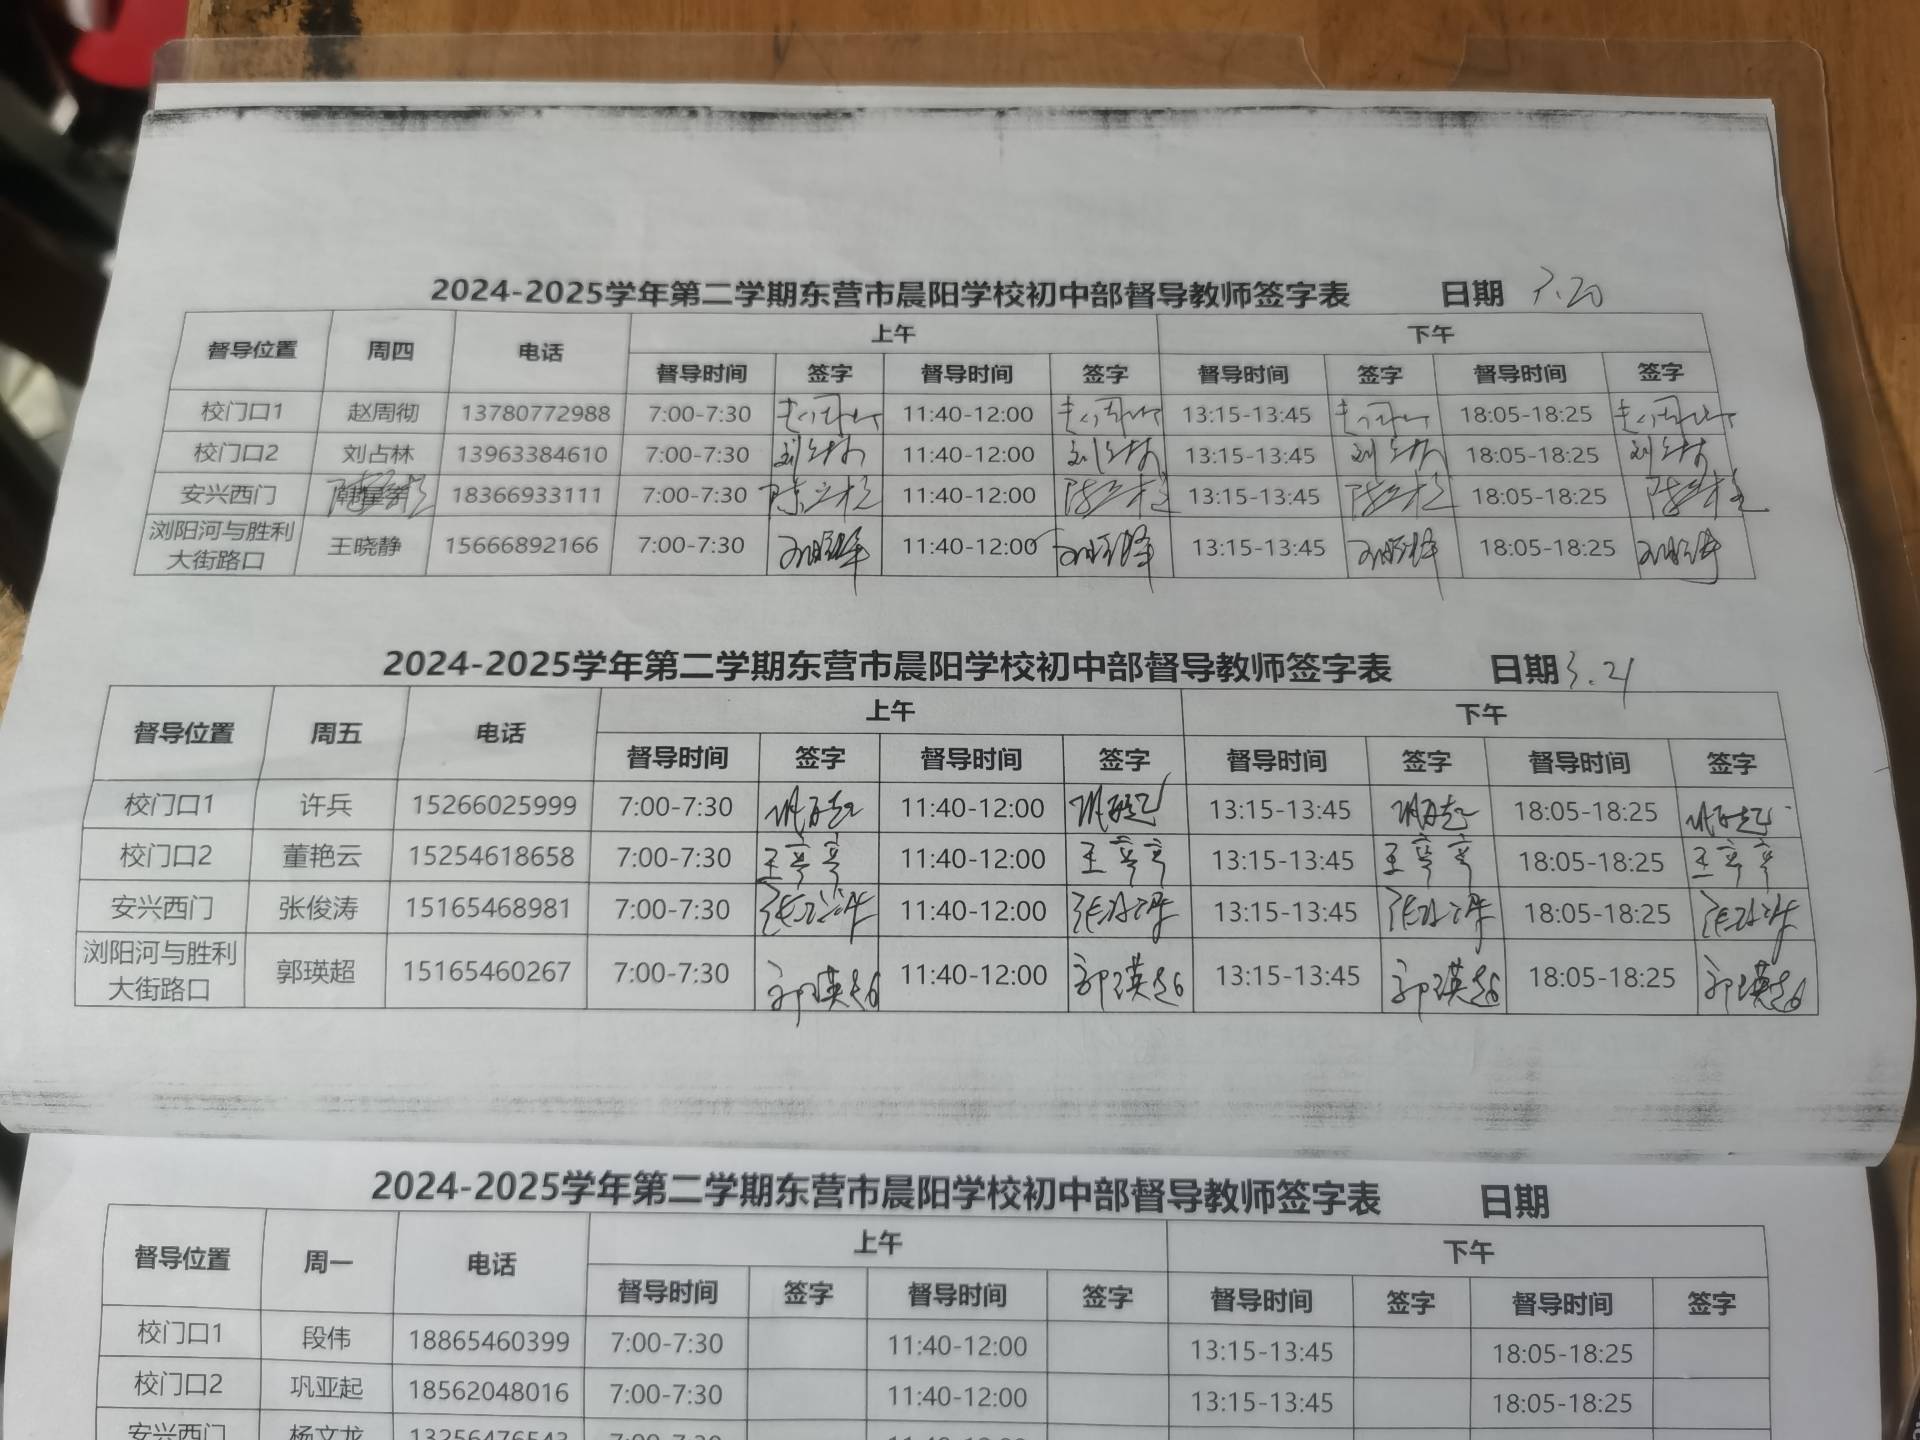 2024-2025学年第二学期东营市晨阳学校初中部督导教师签字表 日期 3.20
督导位置 周四 电话 上午 下午
督导时间 签字 督导时间 签字 督导时间 签字 督导时间 签字
校门口1 赵周彻 13780772988 7:00-7:30 11:40-12:00 13:15-13:45 18:05-18:25
校门口2 刘占林 13963384610 7:00-7:30 刘占林 11:40-12:00 刘占林 13:15-13:45 刘占林 18:05-18:25 刘占林
安兴西门 18366933111 7:00-7:30 11:40-12:00 13:15-13:45 18:05-18:25
浏阳河与胜利
大街路口 王晓静 15666892166 7:00-7:30 11:40-12:00 13:15-13:45 18:05-18:25
2024-2025学年第二学期东营市晨阳学校初中部督导教师签字表 日期 3.21
督导位置 周五 电话 上午 下午
督导时间 签字 督导时间 签字 督导时间 签字 督导时间 签字
校门口1 许兵 15266025999 7:00-7:30 11:40-12:00 13:15-13:45 18:05-18:25
校门口2 董艳云 15254618658 7:00-7:30 11:40-12:00 13:15-13:45 18:05-18:25
安兴西门 张俊涛 15165468981 7:00-7:30 11:40-12:00 13:15-13:45 18:05-18:25
浏阳河与胜利
大街路口 郭瑛超 15165460267 7:00-7:30 郭瑛超 11:40-12:00 郭瑛超 13:15-13:45 郭瑛超 18:05-18:25 郭瑛超
2024-2025学年第二学期东营市晨阳学校初中部督导教师签字表 日期
督导位置 周一 电话 上午 下午
督导时间 签字 督导时间 签字 督导时间 签字 督导时间 签字
校门口1 段伟 18865460399 7:00-7:30 11:40-12:00 13:15-13:45 18:05-18:25
校门口2 巩亚起 18562048016 7:00-7:30 11:40-12:00 13:15-13:45 18:05-18:25
安兴西门 杨文龙 13256476543 7:00-7:30